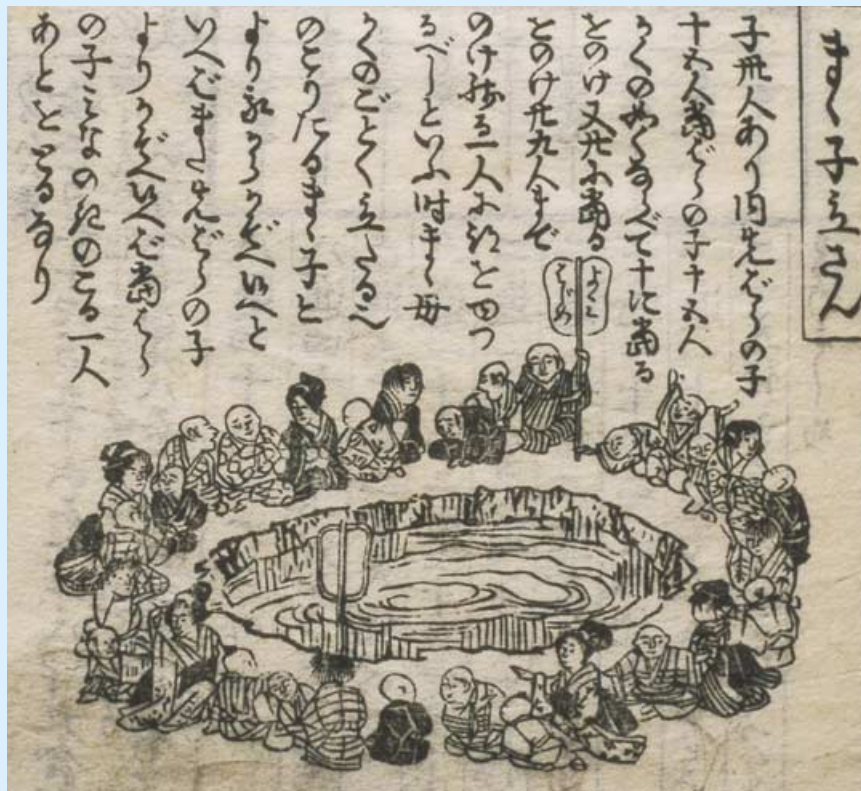 まゝ子立さん
子丗人あり内先ばらの子
十五人當ばらの子十五人
かくの如くならべて十に當る
をのけ又廿に當る
とのけ廿九人まで
のけ残る一人に跡をゆづ
るべしといふ時まゝ母
かくのごとく立たる也
のこりたるまゝ子と
より Kかぞへいへと
いへばまた先ばらの子
よりかぞへいへば當はら
の子みなのきのこる一人
あとをとるなり
これより
はじめ